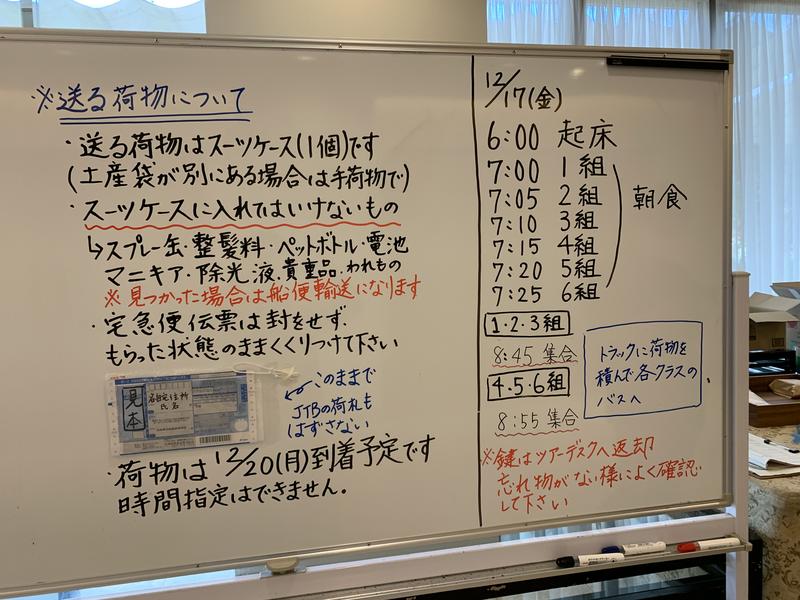 ※送る荷物について
・送る荷物はスーツケース(1個)です
(土産袋が別にある場合は手荷物で)
・スーツケースに入れてはいけないもの
↳スプレー缶・整髪料・ペットボトル・電池
マニキア・除光液.貴重品.われもの
※見つかった場合は船便輸送になります
・宅急便伝票は封をせず.
もらった状態のままくくりつけて下さい
見本
氏名
このままで
JTBの荷札も
はずさない
・荷物は12/20(月)到着予定です
時間指定はできません.
12/17(金)
6:00 起床
7:00 1組
7:05 2組
7:10 3組
7:15 4組
7:20 5組
7:25 6組
朝食
1・2・3組
8:45 集合
4.5.6組
8:55 集合
トラックに荷物を
積んで各クラスの
バスへ
※鍵はツアーデスクへ返却
忘れ物がない様によく確認
して下さい